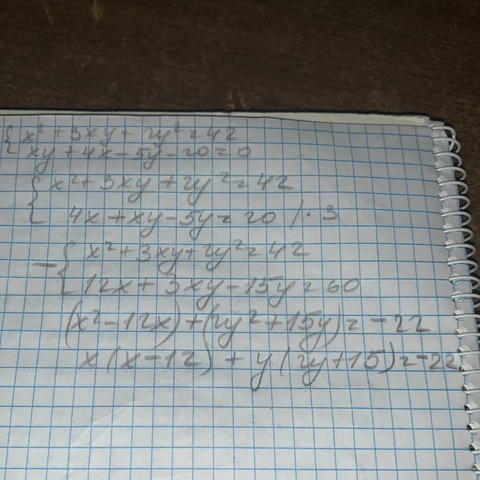 { x² + 3xy + 2y² = 42
{ xy + 4x - 5y - 20 = 0
{ x² + 3xy + 2y² = 42
{ 4x + xy - 5y = 20 / · 3
- { x² + 3xy + 2y² = 42
{ 12x + 3xy - 15y = 60
(x² - 12x) + (2y² + 15y) = -22
x(x - 12) + y(2y + 15) = -22